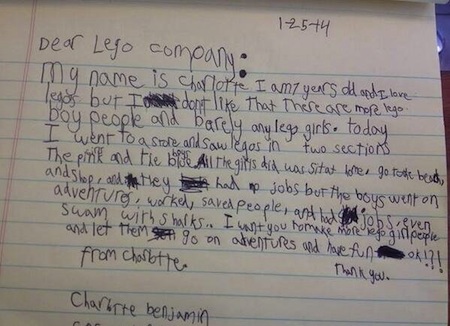 1-25-14
Dear Lego company:
My name is Charlotte I am 7 years old and I love
legos but I don't like that there are more lego
boy people and barely any lego girls. today
I went to a store and saw legos in two sections
The pink girls and the blue boys. All the girls did was sit at home, go to the beach,
and shop, and they had no jobs but the boys went on
adventures, worked, saved people, and had jobs, even
swam with sharks.. I want you to make more lego girl people
and let them go on adventures and have fun ok!?!
Thank you.
from Charlotte.
Charlotte benjamin